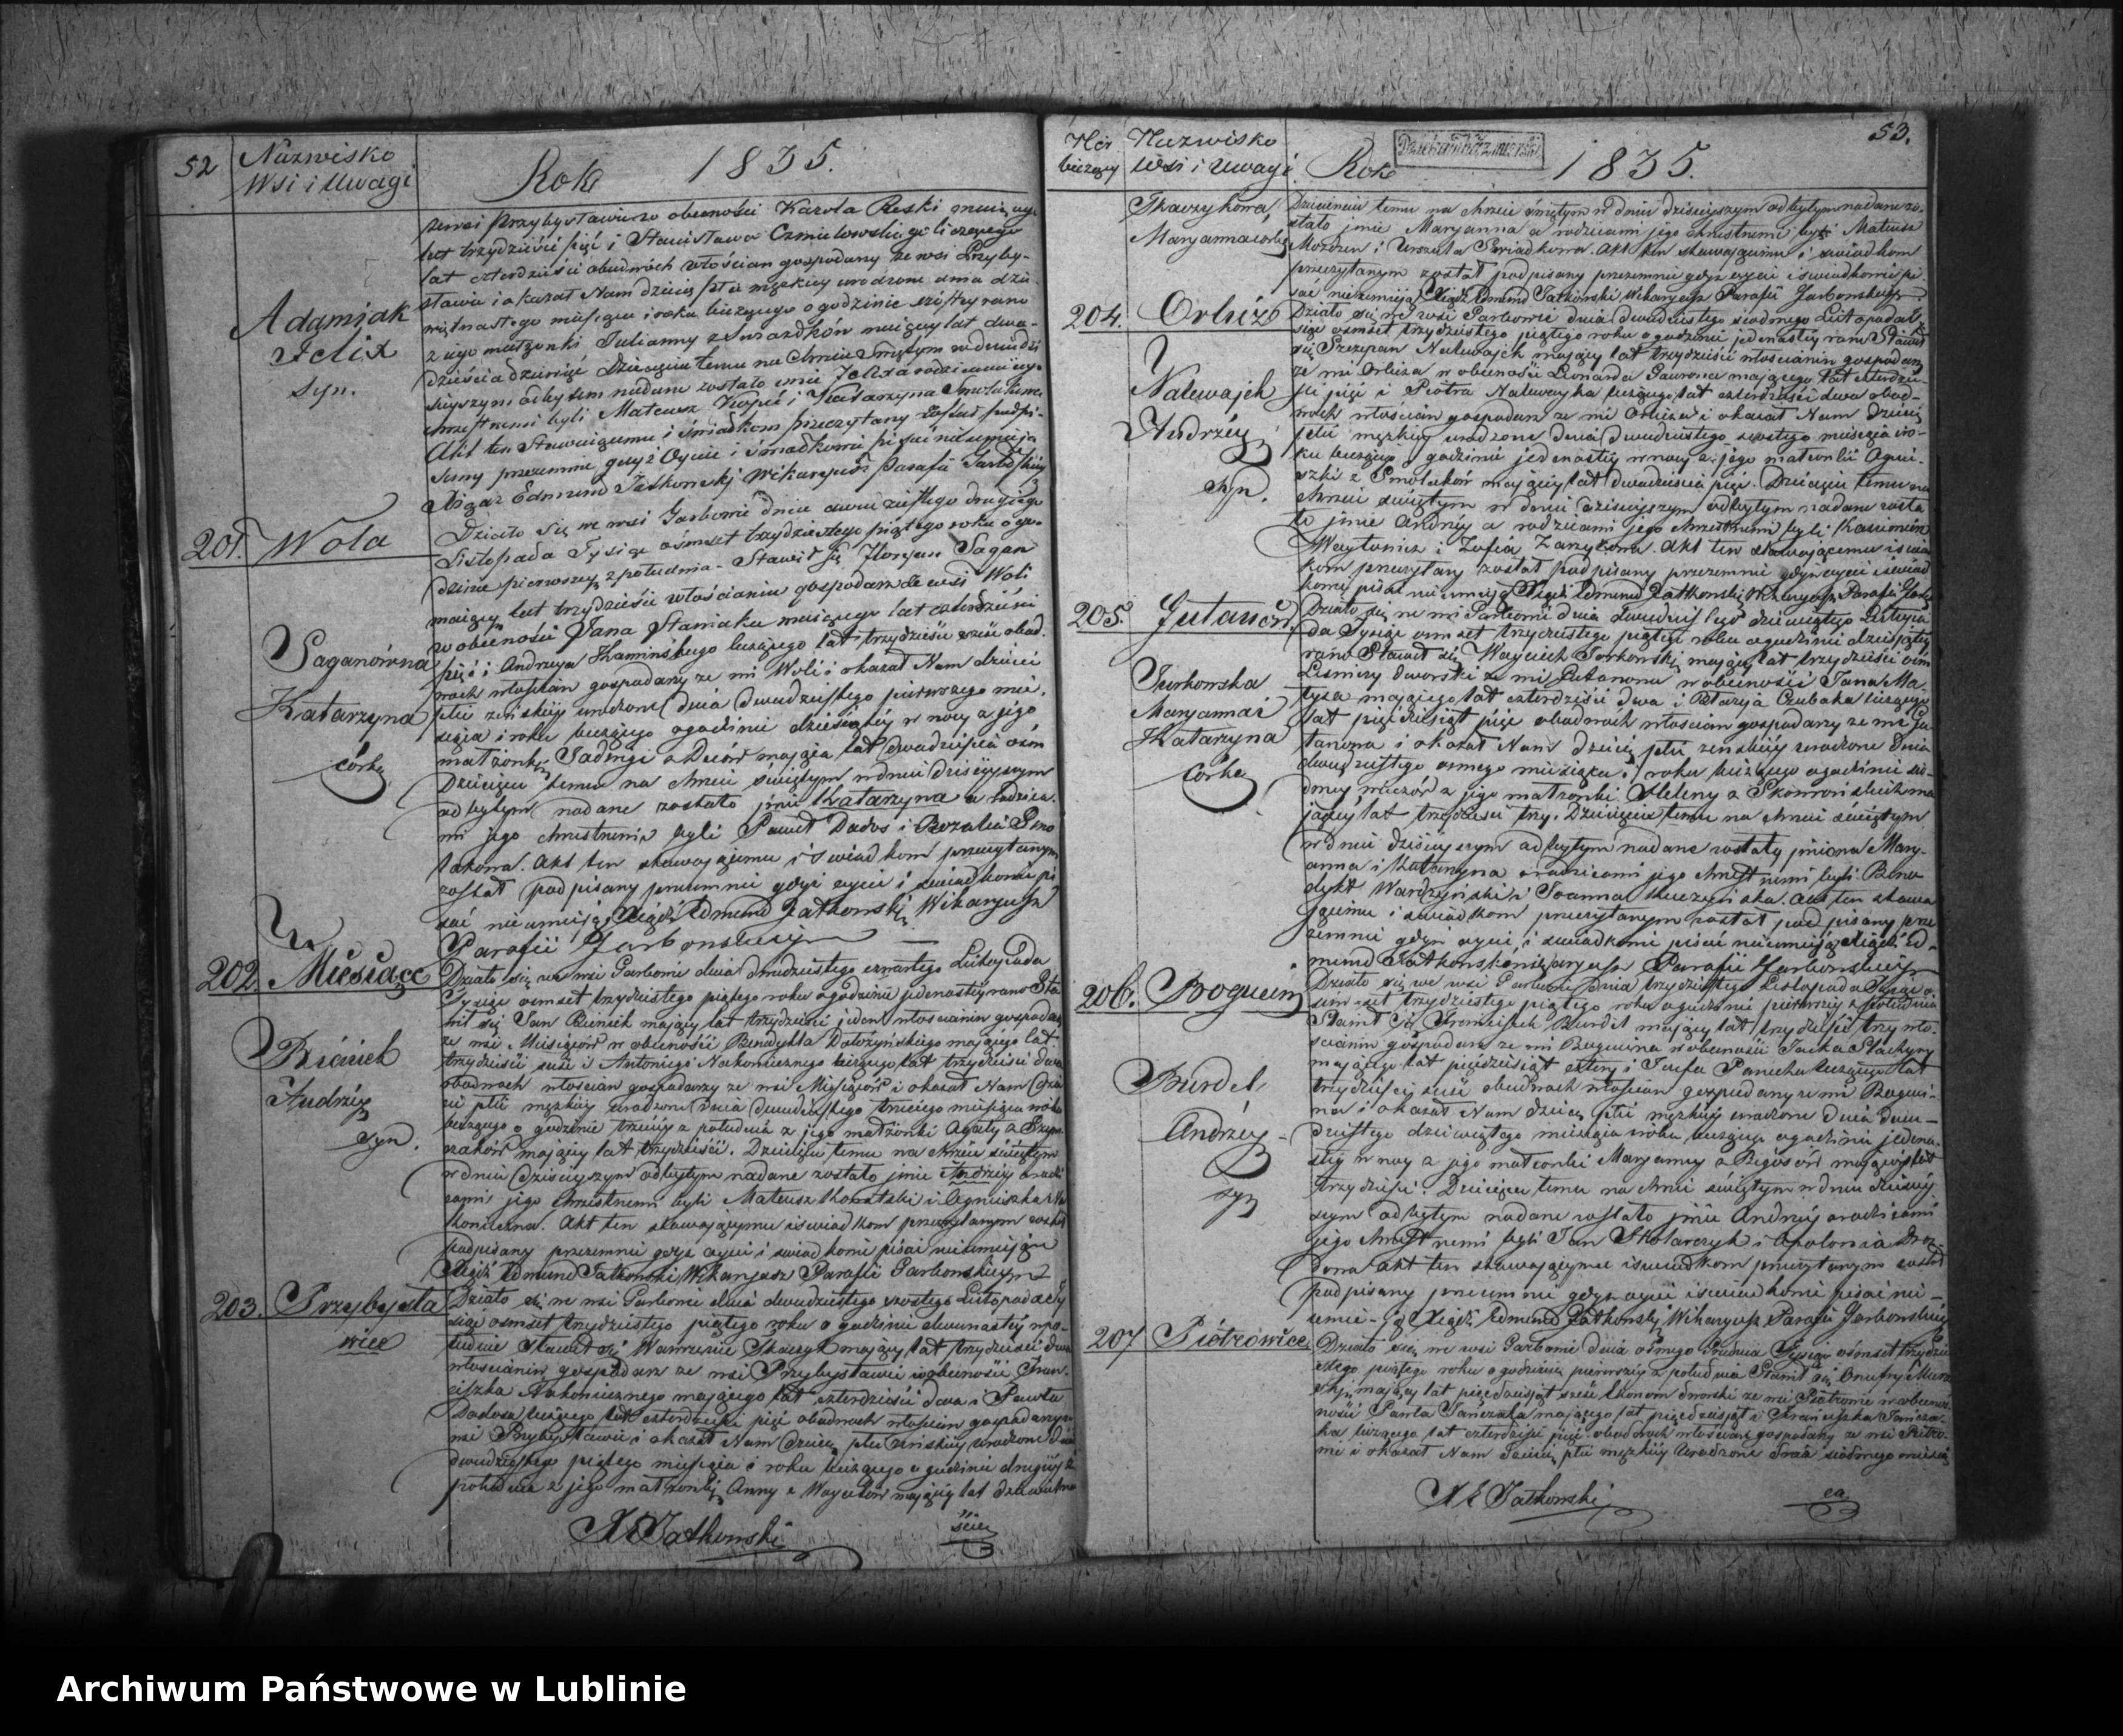 52 Nazwisko
Wsi i Uwagi
Rok 1835.
ze wsi Przybysławic w obecności Karola Reski maiącego
lat trzydzieści pięć i Stanisława Czmielowskiego liczącego
lat czterdzieści obudwóch włościan gospodarzy ze wsi Przyby-
sławic i okazał Nam dziecię płci męskiey urodzone dnia dzie-
więtnastego miesiąca i roku bieżącego o godzinie szóstey rano
z iego małżonki Julianny z Gwiazdków maiącey lat dwa-
dzieścia dziewięć Dziecięciu temu na Chrzcie Świętym w dniu dzi-
sieyszym odbytem nadane zostało imie Felix a rodzicami iego
chrzestnemi byli Mateusz Kopeć i Katarzyna Smolakowa
Akt ten Stawaiącemu i świadkom przeczytany został podpi-
sany przezemnie gdyż Oyciec i świadkowie pisać nieumieją
Xiądz Edmund Jatkowski Wikaryusz Parafii Garbowskiey
Adamiak
Felix
syn.
201. Wola
Działo się we wsi Garbowie dnia dwudziestego drugiego
Listopada Tysiąc ośmset trzydziestego piątego roku o go-
dzinie pierwszey z południa - Stawił się Floryan Sagan
maiący lat trzydzieści włościanin gospodarz ze wsi Woli
w obecności Jana Staniaka maiącego lat czterdzieści
pięć i Andrzeja Kamińskiego liczącego lat trzydzieści sześć obud-
wóch włościan gospodarzy ze wsi Woli i okazał Nam dziecię
płci żeńskiey urodzone dnia dwudziestego pierwszego mie-
siąca i roku bieżącego o godzinie dziesiątey w nocy z jego
małżonki Jadwigi z Duców mająca lat dwadzieścia ośm
Dziecięciu temu na chrzcie świętym w dniu dzisieyszym
odbytym nadane zostało jmie Katarzyna a rodzica-
mi jego chrzestnemi byli Paweł Dados i Rozalia Smo
lakowa. Akt ten stawającemu i świadkom przeczytanym
został podpisany przezemnie gdyż oyciec i świadkowie pi
sać nieumieją Xiądz Edmund Jatkowski Wikaryusz
Parafii Garbowskiey
Saganówna
Katarzyna
córka
202. Miesiące
Działo się we wsi Garbowie dnia dwudziestego czwartego Listopada
Tysiąc ośmset trzydziestego piątego roku o godzinie jedenastey rano Sta
wił się Jan Rieniek mający lat trzydzieści jeden włościanin gospodarz
ze wsi Miesięców w obecności Benedykta Dołożyńskiego mającego lat
trzydzieści sześć i Antoniego Nakoniecznego liczącego lat trzydzieści dwa
obudwoch włościan gospodarzy ze wsi Miesiąców i okazał Nam dzie
cię płci męskiey urodzone dnia dwudziestego trzeciego miesiąca i roku
bieżącego o godzinie trzeciey z południa z jego małżonki Agaty z Szym
czaków mającey lat trzydzieści. Dziecięciu temu na chrzcie świętym
w dniu dzisieyszym odbytym nadane zostało jmie Andrzey a rodzi
cami jego chrzestnemi byli Mateusz Kowalski i Agnieszka Na
konieczna. Akt ten stawającemu i świadkom przeczytanym został
podpisany przezemnie gdyż oyciec i świadkowie pisać nieumieją
Xiądz Edmund Jatkowski Wikaryusz Parafii Garbowskiey
Andrzey
syn.
203. Przybysła
wice
Działo się we wsi Garbowie dnia dwudziestego szóstego Listopada Ty
siąc ośmset trzydziestego piątego roku o godzinie dwunastey w po-
łudnie Stawił się Wawrzeniec Tkaczyk mający lat trzydzieści dwa
włościanin gospodarz ze wsi Przybysławic w obecności Fran-
ciszka Nakoniecznego mającego lat czterdzieści dwa i Pawła
Dadosa liczącego lat czterdzieści pięć obudwoch włościan gospodarzy ze
wsi Przybysławic i okazał Nam dziecię płci żeńskiey urodzone dnia
dwudziestego piątego miesiąca i roku bieżącego o godzinie drugiey z
południa z jego małżonki Anny z Woyciów mającey lat dwadzie
ścia
X E Jatkowski
Nër
bieżący
Nazwisko
Wsi i Uwagi
Rok 1835.
53.
Tkaczykowa
Maryanna córka
Dziecięciu temu na chrzcie świętym w dniu dzisieyszym odbytym nadane zo-
stało jmie Maryanna a rodzicami jego chrzestnemi byli Mateusz
Mozdzen i Urszula Świadkowa. Akt ten stawającemu i świadkom
przeczytanym został podpisany przezemnie gdyż oyciec i świadkowie pi
sać nieumieją Xiądz Edmund Jatkowski Wikaryusz Parafii Garbowskiey
204. Orlicz
Działo się we wsi Garbowie dnia dwudziestego siodmego Listopada Ty
siąc ośmset trzydziestego piątego roku o godzinie jedenastey rano Stawił
się Szczepan Nalewajek mający lat trzydzieści włościanin gospodarz
ze wsi Orlicza w obecności Leonarda Gawrona mającego lat czterdzie-
ści pięć i Piotra Nalewayka liczącego lat czterdzieści dwa obud-
woch włościan gospodarz ze wsi Orlicza i okazał Nam dziecię
płci męzkiey urodzone dnia dwudziestego szóstego miesiąca i ro-
ku bieżącego o godzinie jedenastey w nocy z jego małżonki Agnie-
szki z Smolaków mającey lat dwadzieścia pięć. Dziecięciu temu na
chrzcie świętym w dniu dzisieyszym odbytym nadane zosta
ło jmie Andrzey a rodzicami jego chrzestnemi byli Kazimierz
Woytowicz i Zofia Zarzykowa. Akt ten stawającemu i świad
kom przeczytany został podpisany przezemnie gdyż oyciec i świad
kowie pisać nieumieją Xiądz Edmund Jatkowski Wikaryusz Parafii Garb
Nalewajek
Andrzey
syn.
205. Gutanów
Działo się we wsi Garbowie dnia dwudziestego dziewiątego Listopa
da Tysiąc ośmset trzydziestego piątego roku o godzinie dziesiątey
rano Stawił się Woyciech Jurkowski mający lat trzydzieści ośm
Leśniczy dworski ze wsi Gutanowa w obecności Jana Ma-
tysa mającego lat czterdzieści dwa i Błażeja Czubaka liczącego
lat pięćdziesiąt pięć obudwoch włościan gospodarzy ze wsi Gu
tanowa i okazał Nam dziecię płci żeńskiey urodzone dnia
dwudziestego osmego miesiąca i roku bieżącego o godzinie sió-
dmey wieczór z jego małżonki Heleny z Skowrońskich ma
jącey lat trzydzieści trzy. Dziecięciu temu na chrzcie świętym
w dniu dzisieyszym odbytym nadane zostały jmiona Mary-
anna i Katarzyna a rodzicami jego chrzestnemi byli Bene
dykt Wardzyński i Joanna Kuczyńska. Akt ten stawa
jącemu i świadkom przeczytanym został podpisany prze
zemnie gdyż oyciec i świadkowie pisać nieumieją Xiądz Ed-
mund Jatkowski Wikaryusz Parafii Garbowskiey
Jurkowska
Maryanna i
Katarzyna
córka
206. Bogucin
Działo się we wsi Garbowie dnia trzydziestego Listopada Tysiąc o-
śmset trzydziestego piątego roku o godzinie pierwszey z południa
Stawił się Franciszek Burdel mający lat trzydzieści trzy wło-
ścianin gospodarz ze wsi Bogucina w obecności Jacka Stachyry
mającego lat pięćdziesiąt cztery i Józefa Panecka liczącego lat
trzydzieści sześć obudwoch włościan gospodarzy ze wsi Boguci-
na i okazał Nam dziecię płci męzkiey urodzone dnia dwu-
dziestego dziewiątego miesiąca i roku bieżącego o godzinie jedena-
stey w nocy z jego małżonki Maryanny z Bigosów mającey lat
trzydzieści. Dziecięciu temu na chrzcie świętym w dniu dzisiey
szym odbytym nadane zostało jmie Andrzey a rodzicami
jego chrzestnemi byli Jan Stolarczyk i Apolonia Droz-
dowa Akt ten stawającemu i świadkom przeczytanym został
podpisany przezemnie gdyż oyciec i świadkowie pisać nie-
umie-ją Xiądz Edmund Jatkowski Wikaryusz Parafii Garbowskiey
Burdel,
Andrzey
syn
207 Piotrowice
Działo się we wsi Garbowie dnia ósmego Grudnia Tysiąc ośmset trzydzie
stego piątego roku o godzinie pierwszey z południa Stawił się Onufry
mający lat pięćdziesiąt sześć Ekonom dworski ze wsi Piotrowic w obecno-
ności Pawła Janczaka mającego lat pięćdziesiąt i Franciszka Jancza-
ka liczącego lat czterdzieści pięć obudwoch włościan gospodarzy ze wsi Piotro-
wic i okazał Nam dziecię płci męzkiey urodzone dnia siódmego miesią
ca
X E Jatkowski
Archiwum Państwowe w Lublinie